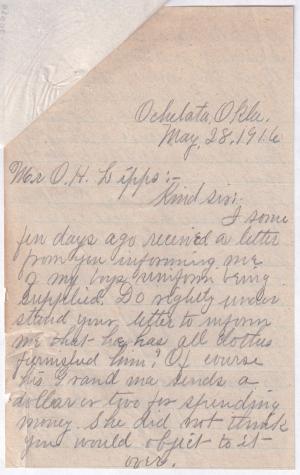 Ochelata, Okla.
May, 28, 1916
Mr O. H. Lipps:-
Kind sir:
I some
few days ago received a letter
from you informing me
of my boys uniform being
supplied. Do rightly under
stand your letter to inform
me that he has all clothes
furnished him? Of course
his Grand ma sends a
dollar or two for spending
money. She did not think
you would object to it
over.